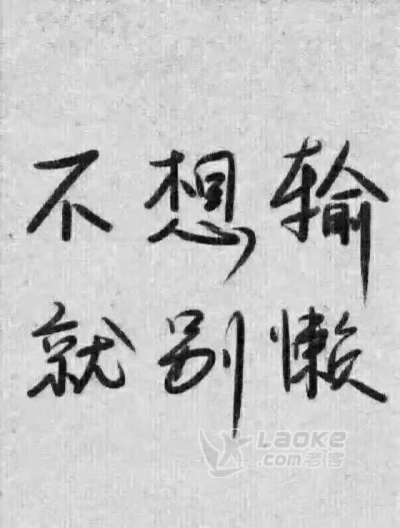 不想输
就别懒
Laoke
.com老客